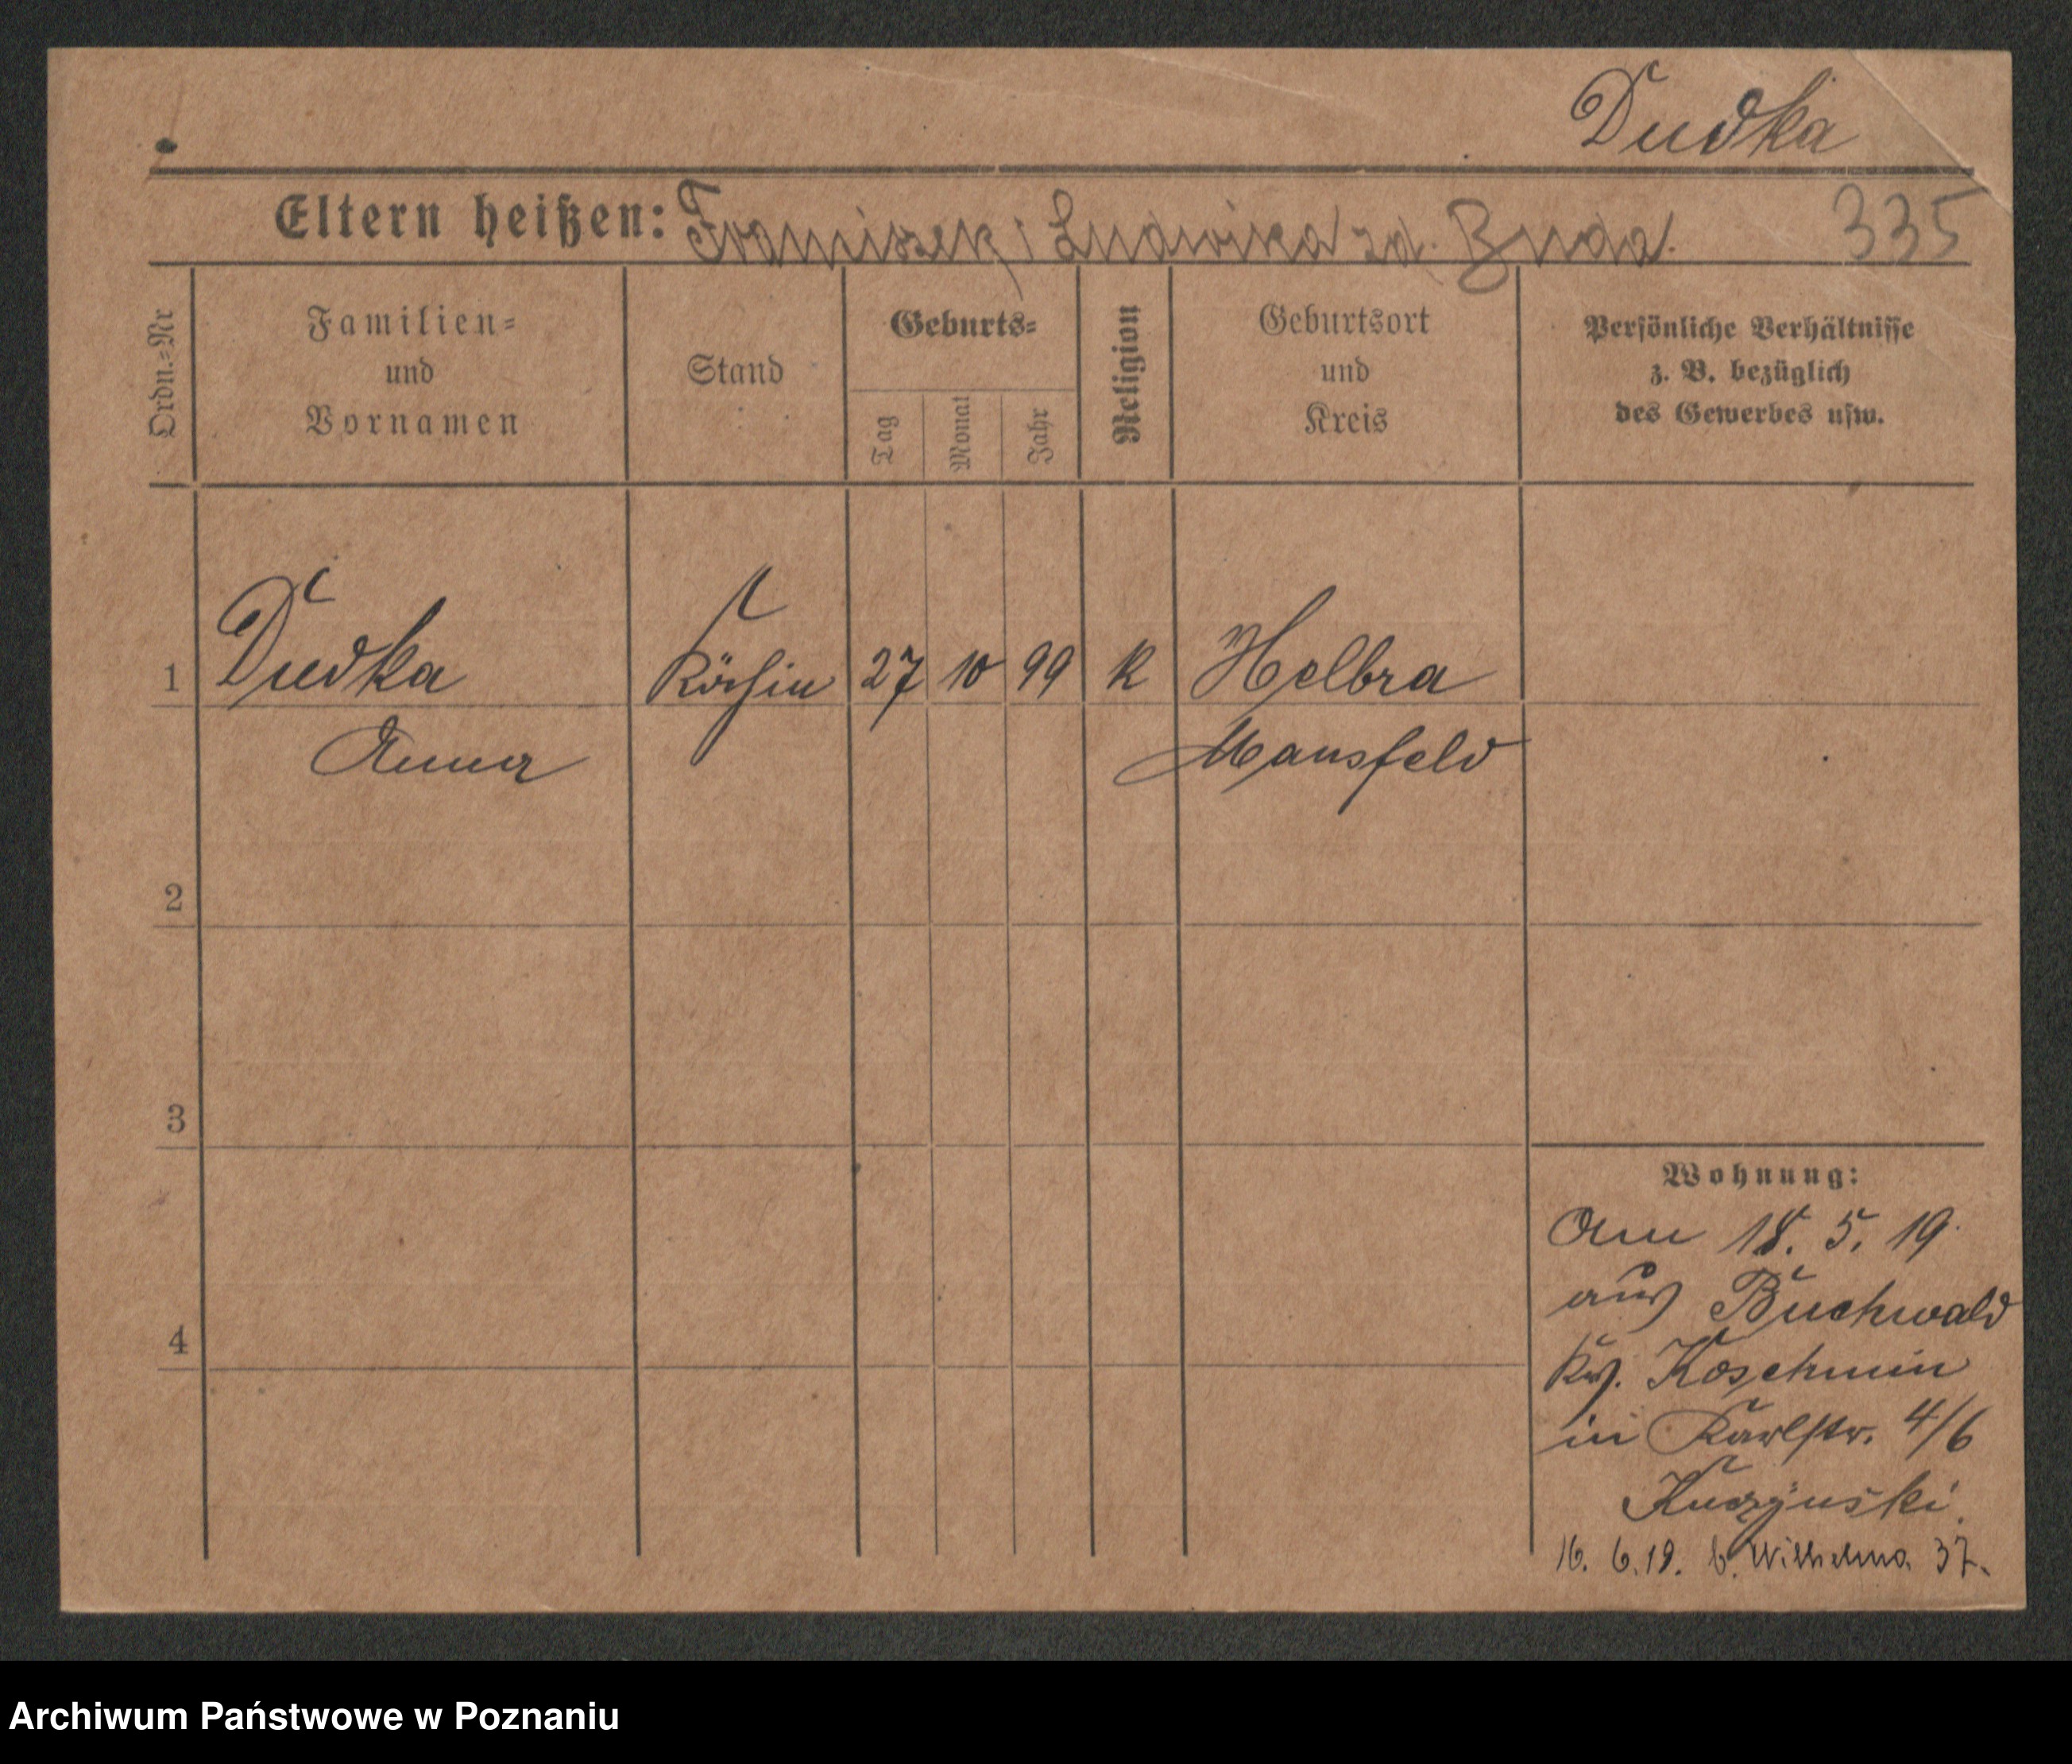 Dudka
Eltern heißen: Franciszek i Ludwika zd. Buda. 335
Ordn.=Nr
Familien=
und
Vornamen
Stand
Geburts=
Tag
Monat
Jahr
Religion
Geburtsort
und
Kreis
Persönliche Verhältnisse
z. B. bezüglich
des Gewerbes usw.
1 Dudka Köchin 27 10 99 K Helbra
Anna Mansfeld
2
3
4
Wohnung:
Am 18. 5. 19.
aus Buchwald
Krs. Koschmin
in Karlstr. 4/6
Kuczynski
16. 6. 19. b. Wilhelma 37.
Archiwum Państwowe w Poznaniu